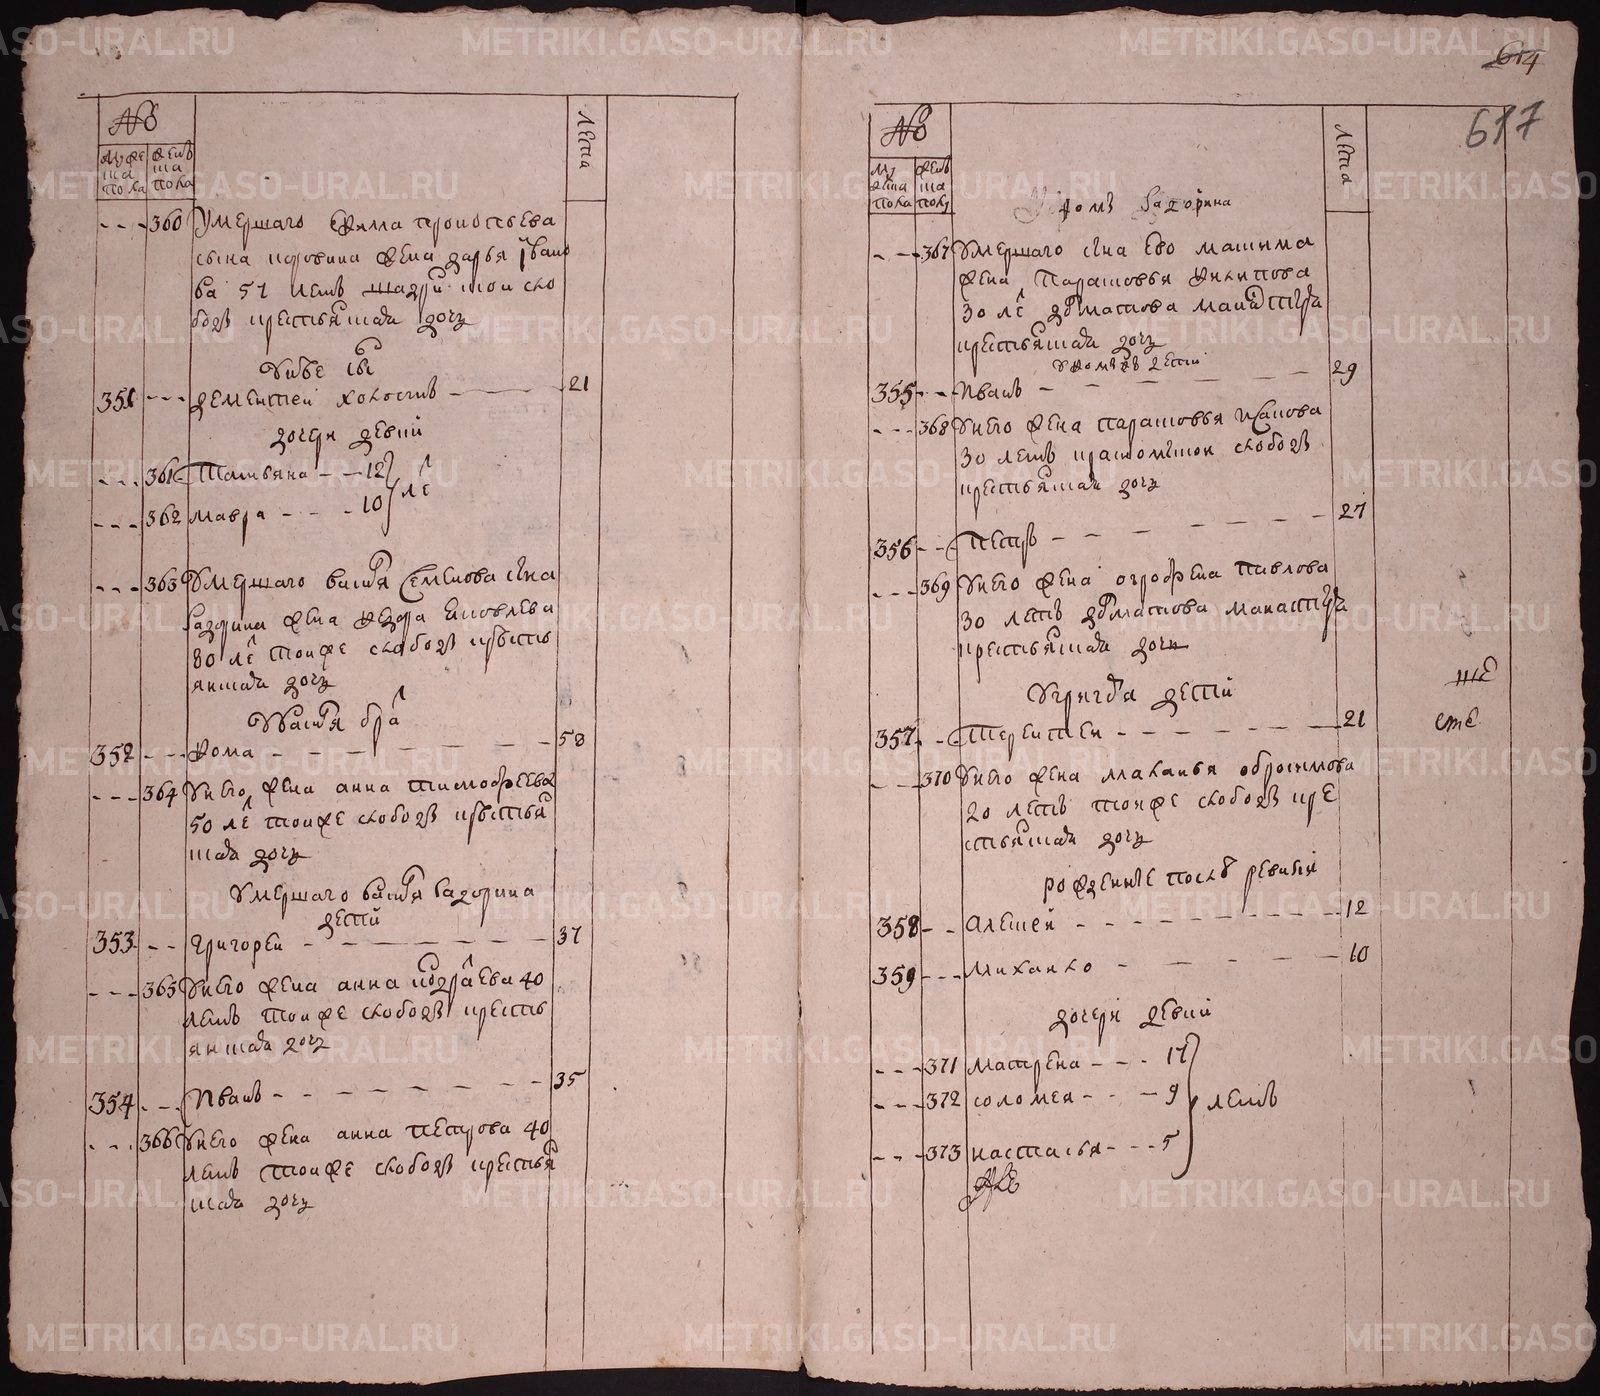 №
мужеска пола
женска пола
лета
360 Умершаго Фама Прокопьева
сына жена дарья Iвано
ва 51 летъ шадринской сло
боды крестьянская дочь
У нее сын
351 дементей холостъ 21
дочери девки
361 Татьяна 12
лет
362 мавра 10
363 Умершаго василья Семенова сына
Задорина жена федора Яковлева
80 лет тоиже слободы кресть
янская дочь
У василья брат
352 Фома 58
364 У него жена анна тимофеева
50 лет тоиже слободы крестьян
ская дочь
Умершаго василья Задорина
дети
353 Григорей 37
365 У него жена анна 40
летъ тоиже слободы кресть
янская дочь
354 Иванъ 35
366 У него жена анна петрова 40
летъ тоиже слободы крестьян
ская дочь
614
617
№
мужеска пола
женска пола
лета
У Фомы Задорина
367 Умершаго сына ево максима
жена Парасковья Филипова
30 лет далматова манастыря
крестьянская дочь
У Фомы дети
355 Иванъ 29
368 У него жена парасковья
30 летъ слободы
крестьянская дочь
356 Петръ 27
369 У него жена огрофена павлова
30 летъ далматова манастыря
крестьянская дочь
У григорья дети
357 Терентей 21
370 У него жена маланья обросимова
20 летъ тоиже слободы кре
стьянская дочь
рожденные после ревизии
358 Алексей 12
359 Михайло 10
дочери девки
371 матрена 17
372 соломея 9 летъ
373 настасья 5